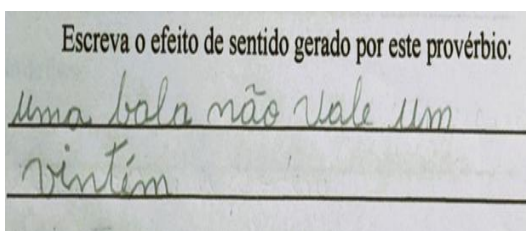 Escreva o efeito de sentido gerado por este provérbio:
uma bala não vale um
vintém